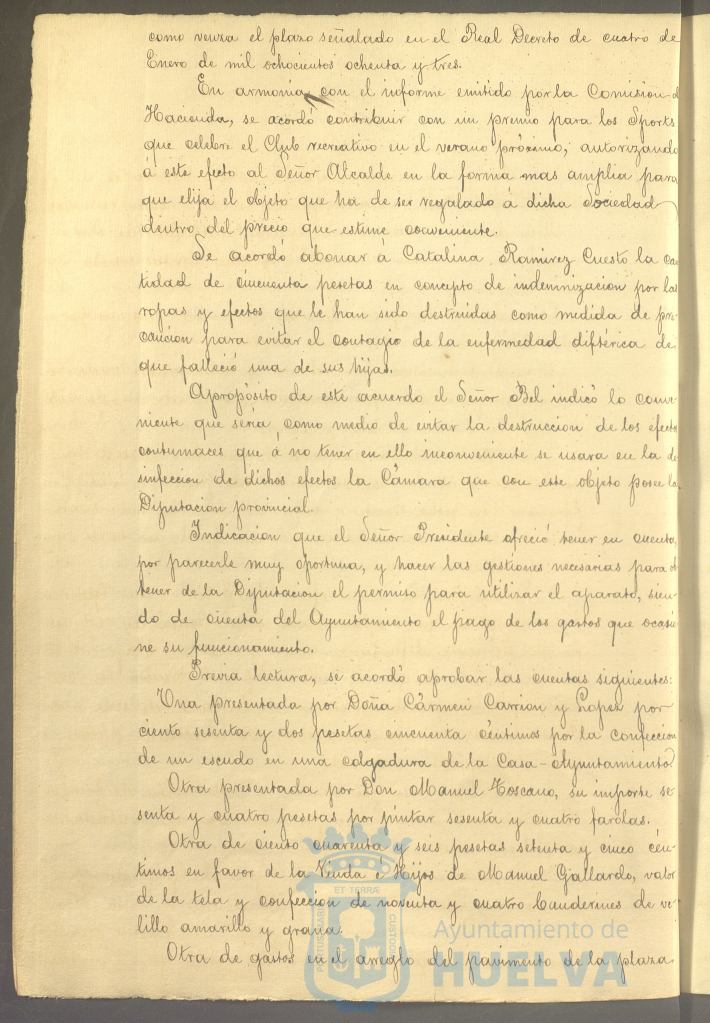 como venza el plazo señalado en el Real Decreto de cuatro de
Enero de mil ochocientos ochenta y tres.
En armonía con el informe emitido por la Comision d
Hacienda, se acordó contribuir con un premio para los Sports
que celebre el Club recreativo en el verano próximo; autorizando
á este efecto al Señor Alcalde en la forma mas amplia para
que elija el objeto que ha de ser regalado á dicha Sociedad
dentro del precio que estime conveniente.
Se acordó abonar á Catalina Ramirez Cuesto la can
tidad de cincuenta pesetas en concepto de indemnizacion por las
ropas y efectos que le han sido destruidas como medida de pre
caucion para evitar el contagio de la enfermedad diftérica de
que falleció una de sus hijas.
Apropósito de este acuerdo el Señor Bel indicó lo conve
niente que seria, como medio de evitar la destruccion de los efectos
contumaces que á no tener en ello inconveniente se usara en la de
sinfeccion de dichos efectos la Cámara que con este objeto posee la
Diputacion provincial.
Indicacion que el Señor Presidente ofreció tener en cuenta,
por parecerle muy oportuna, y hacer las gestiones necesarias para ob
tener de la Diputacion el permiso para utilizar el aparato, sien-
do de cuenta del Ayuntamiento el pago de los gastos que ocasio
ne su funcionamiento.
Previa lectura, se acordó aprobar las cuentas siguientes:
Una presentada por Doña Cármen Carrion y Lopez por
ciento sesenta y dos pesetas cincuenta céntimos por la confeccion
de un escudo en una colgadura de la Casa-Ayuntamiento
Otra presentada por Don Manuel Toscano, su importe se-
senta y cuatro pesetas por pintar sesenta y cuatro farolas.
Otra de ciento cuarenta y seis pesetas setenta y cinco cén-
timos en favor de la Viuda é Hijos de Manuel Gallardo, valor
de la tela y confeccion de noventa y cuatro banderines de ve-
lillo amarillo y grana.
Otra de gastos en el arreglo del pavimento de la plaza
PORTUS MARIS
ET TERRÆ
CUSTODIA
Ayuntamiento de
HUELVA